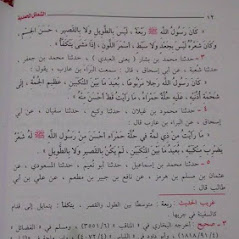 الشمائل المحمدية
١٢
« كان رسول الله ﷺ ربعة ، ليس بالطويل ولا بالقصير ، حسن الجسم ،
وكان شعره ليس بجعد ولا سبط ، أسمر اللون ، إذا مشى يتكفأ »
٣ - حدثنا محمد بن بشار ( يعني العبدي ) ، حدثنا محمد بن جعفر ،
حدثنا شعبة ، عن أبي إسحاق ، قال : سمعت البراء بن عازب ، يقول :
« كان رسول الله ﷺ رجلا مربوعا ، بعيد ما بين المنكبين ، عظيم الجمة ، إلى
أذنيه ، عليه حلة حمراء ، ما رأيت شيئا قط أحسن منه »
٤ - حدثنا محمود بن غيلان ، حدثنا وكيع ، حدثنا سفيان ، عن أبي
إسحاق ، عن البراء بن عازب قال :
« ما رأيت من ذي لمة في حلة حمراء أحسن من رسول الله ﷺ له شعر
يضرب منكبيه ، بعيد ما بين المنكبين ، لم يكن بالقصير ولا بالطويل »
٥ - حدثنا محمد بن إسماعيل ، حدثنا أبو نعيم ، حدثنا المسعودي ، عن
عثمان بن مسلم بن هرمز ، عن نافع بن جبير بن مطعم ، عن علي بن أبي
طالب قال :
غريب الحديث : ربعة : متوسطا بين الطول والقصر . يتكفأ : يتمايل إلى قدام
كالسفينة في جريها .
٣ - صحيح : أخرجه البخاري في « المناقب » (٣٥٥١/٦) ، ومسلم في « الفضائل »